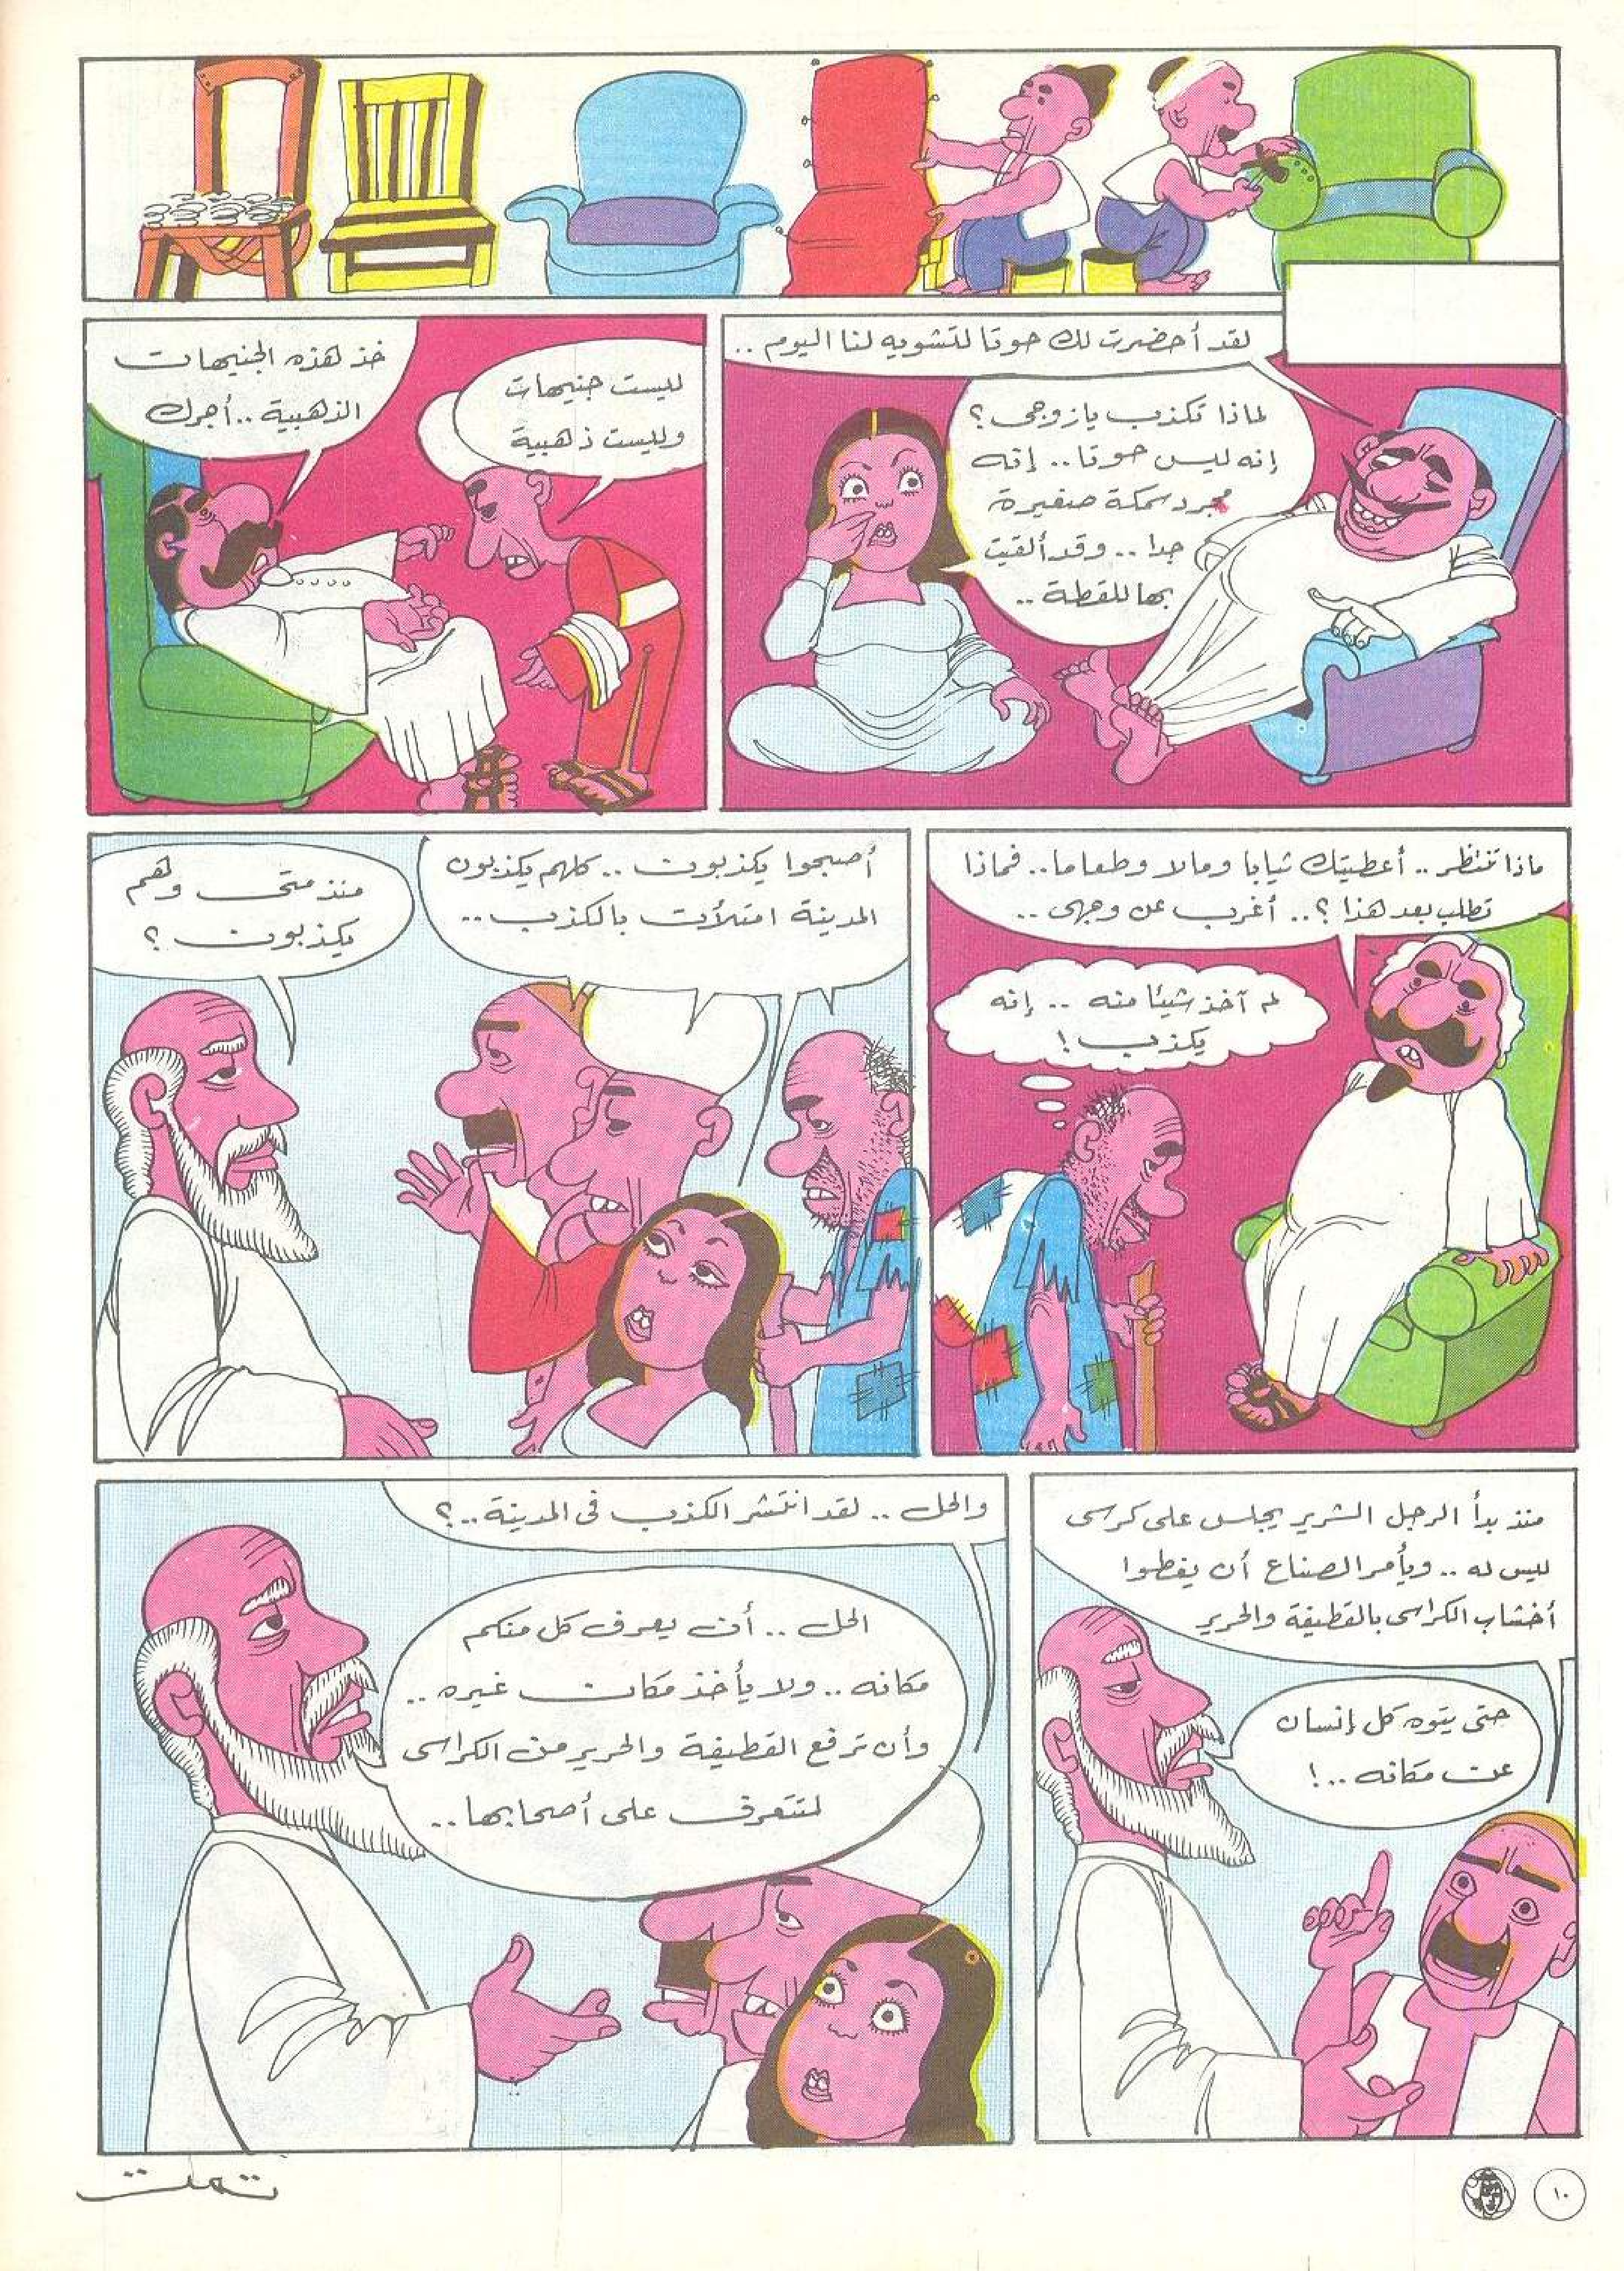 لقد أحضرت لك حوتا لتشويه لنا اليوم ..
لماذا تكذب يازوجى ؟
إنه ليس حوتا .. إنه
مجرد سمكة صغيرة
جدا .. وقد ألقيت
بها للقطة ..
ليست جنيهات
وليست ذهبية
خذ هذه الجنيهات
الذهبية .. أجرك
ماذا تنتظر .. أعطيتك ثيابا ومالا وطعاما .. فماذا
تطلب بعد هذا ؟ .. أغرب عن وجهى ..
لم آخذ شيئا منه .. إنه
يكذب !
أصبحوا يكذبون .. كلهم يكذبون
المدينة امتلأت بالكذب ..
منذ متى وهم
يكذبون ؟
منذ بدأ الرجل الشرير يجلس على كرسى
ليس له .. ويأمر الصناع أن يغطوا
أخشاب الكراسى بالقطيفة والحرير
حتى يتوه كل إنسان
عن مكانه .. !
والحل .. لقد انتشر الكذب فى المدينة .. ؟
الحل .. أن يعرف كل منكم
مكانه .. ولا يأخذ مكان غيره ..
وأن ترفع القطيفة والحرير من الكراسى
لنتعرف على أصحابها ..
تمت
١٠